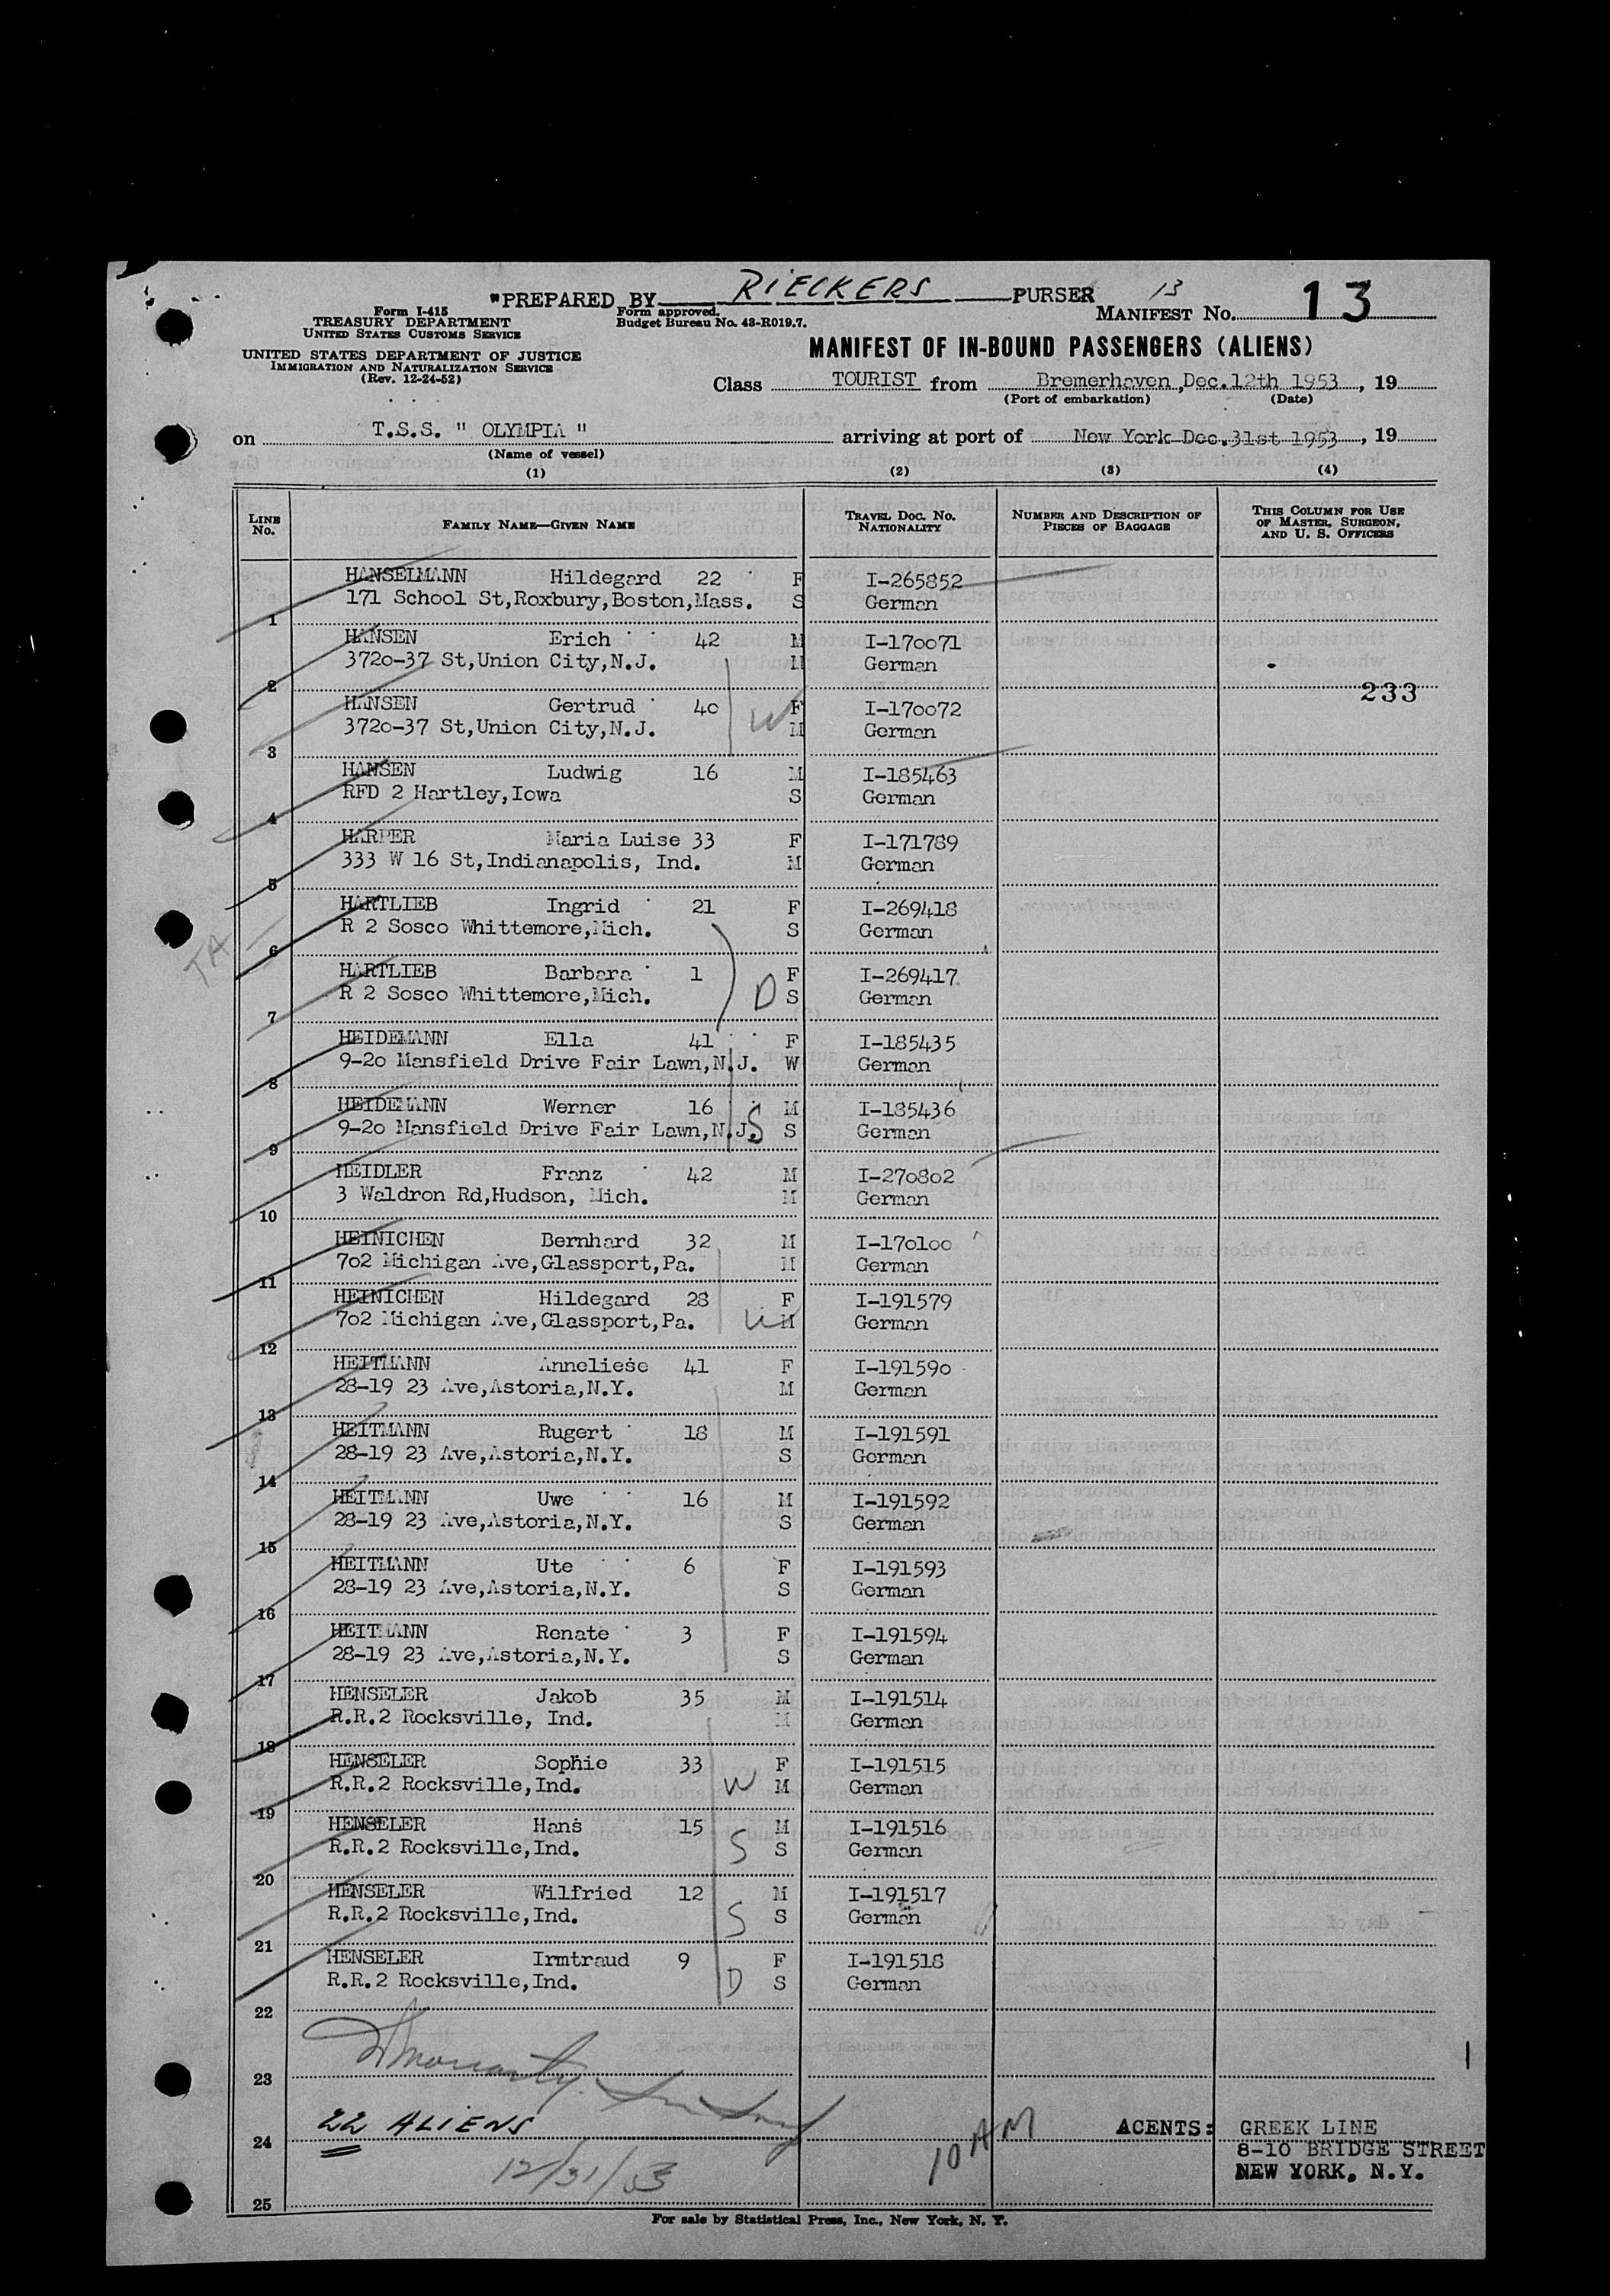 "PREPARED BY RIECKERS PURSER 13
Form I-415
TREASURY DEPARTMENT
UNITED STATES CUSTOMS SERVICE
Form approved.
Budget Bureau No. 43-R019.7.
MANIFEST No. 13
UNITED STATES DEPARTMENT OF JUSTICE
IMMIGRATION AND NATURALIZATION SERVICE
(Rev. 12-24-52)
MANIFEST OF IN-BOUND PASSENGERS (ALIENS)
Class TOURIST from Bremerhaven, Dec. 12th 1953, 19
(Port of embarkation) (Date)
on T.S.S. " OLYMPIA " arriving at port of New York Dec. 31st 1953, 19
(Name of vessel)
(1) (2) (3) (4)
LINE No. FAMILY NAME—GIVEN NAME TRAVEL DOC. NO. NATIONALITY NUMBER AND DESCRIPTION OF PIECES OF BAGGAGE THIS COLUMN FOR USE OF MASTER, SURGEON, AND U. S. OFFICERS
HANSELMANN Hildegard 22 F I-265852
171 School St,Roxbury,Boston,Mass. S German
1
HANSEN Erich 42 M I-170071
3720-37 St,Union City,N.J. M German
2
233
HANSEN Gertrud 40 F I-170072
3720-37 St,Union City,N.J. W M German
3
HANSEN Ludwig 16 M I-185463
RFD 2 Hartley,Iowa S German
4
HARPER Maria Luise 33 F I-171789
333 W 16 St,Indianapolis, Ind. M German
5
HARTLIEB Ingrid 21 F I-269418
R 2 Sosco Whittemore,Mich. S German
TA 6
HARTLIEB Barbara 1 F I-269417
R 2 Sosco Whittemore,Mich. D S German
7
HEIDEMANN Ella 41 F I-185435
9-20 Mansfield Drive Fair Lawn,N.J. W German
8
HEIDEMANN Werner 16 M I-185436
9-20 Mansfield Drive Fair Lawn,N.J. S S German
9
HEIDLER Franz 42 M I-270802
3 Waldron Rd,Hudson, Mich. M German
10
HEINICHEN Bernhard 32 M I-170100
702 Michigan Ave,Glassport,Pa. M German
11
HEINICHEN Hildegard 28 F I-191579
702 Michigan Ave,Glassport,Pa. W M German
12
HEITMANN Anneliese 41 F I-191590
28-19 23 Ave,Astoria,N.Y. M German
13
HEITMANN Rugert 18 M I-191591
28-19 23 Ave,Astoria,N.Y. S German
14
HEITMANN Uwe 16 M I-191592
28-19 23 Ave,Astoria,N.Y. S German
15
HEITMANN Ute 6 F I-191593
28-19 23 Ave,Astoria,N.Y. S German
16
HEITMANN Renate 3 F I-191594
28-19 23 Ave,Astoria,N.Y. S German
17
HENSELER Jakob 35 M I-191514
R.R.2 Rocksville, Ind. M German
18
HENSELER Sophie 33 F I-191515
R.R.2 Rocksville,Ind. W M German
19
HENSELER Hans 15 M I-191516
R.R.2 Rocksville,Ind. S S German
20
HENSELER Wilfried 12 M I-191517
R.R.2 Rocksville,Ind. S S German
21
HENSELER Irmtraud 9 F I-191518
R.R.2 Rocksville,Ind. D S German
22
23
22 ALIENS
10 AM
AGENTS: GREEK LINE
24
8-10 BRIDGE STREET
12/31/53
NEW YORK, N.Y.
25
For sale by Statistical Press, Inc., New York, N. Y.